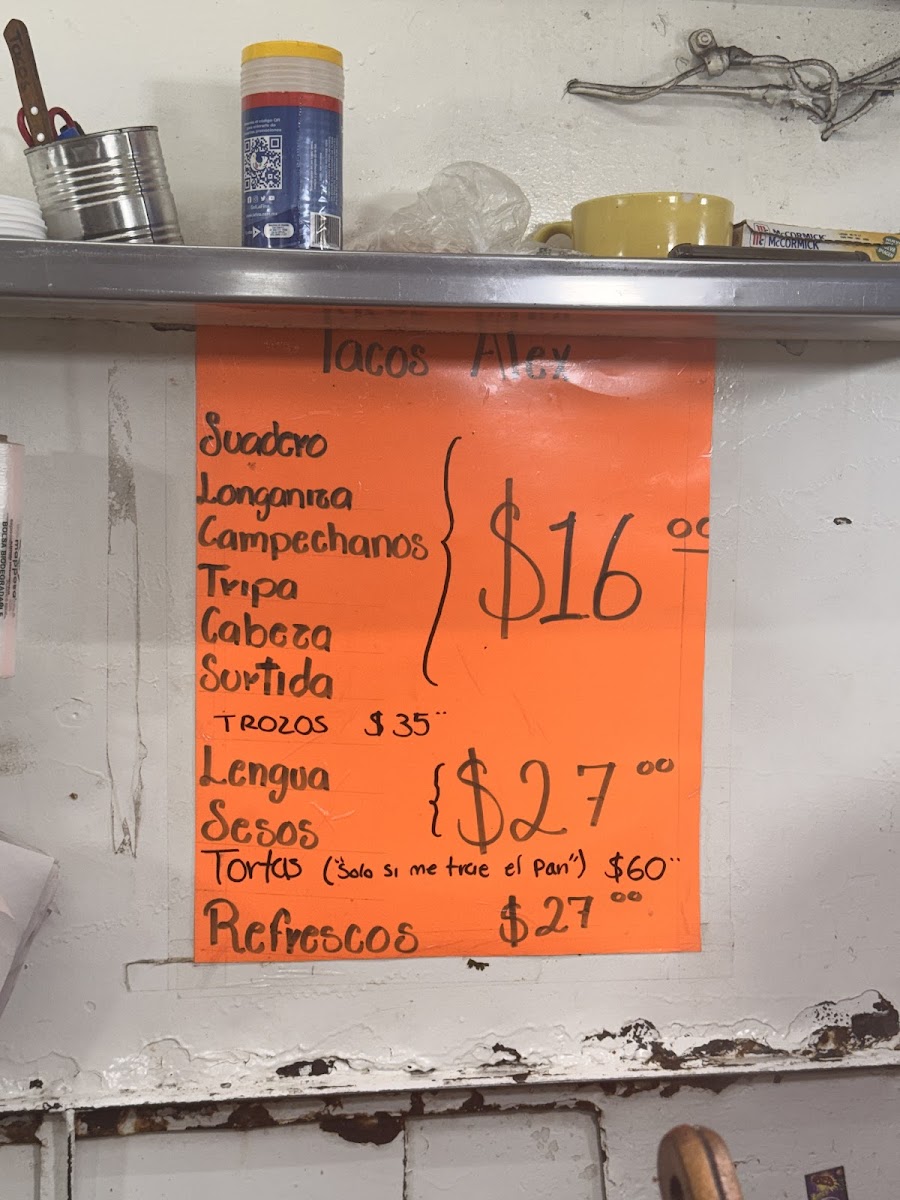 McCORMICK
McCORMICK
Tacos Alex
Suadero
Longaniza
Campechanos
Tripa
Cabeza
Surtida
$16 00
TROZOS $35
Lengua
Sesos
$27 00
Tortas ("Solo si me trae el pan") $60
Refrescos $27 00
BOLSA BIODEGRADABLE